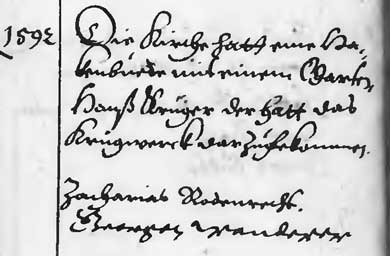 1592
Die Kirche hatt eine Ha-
kenbuede mit einem Garten
Hanß Krüger der hatt das
Krugwerck darzu bekommen.
Zacharias Rodenrecht.
Georgen